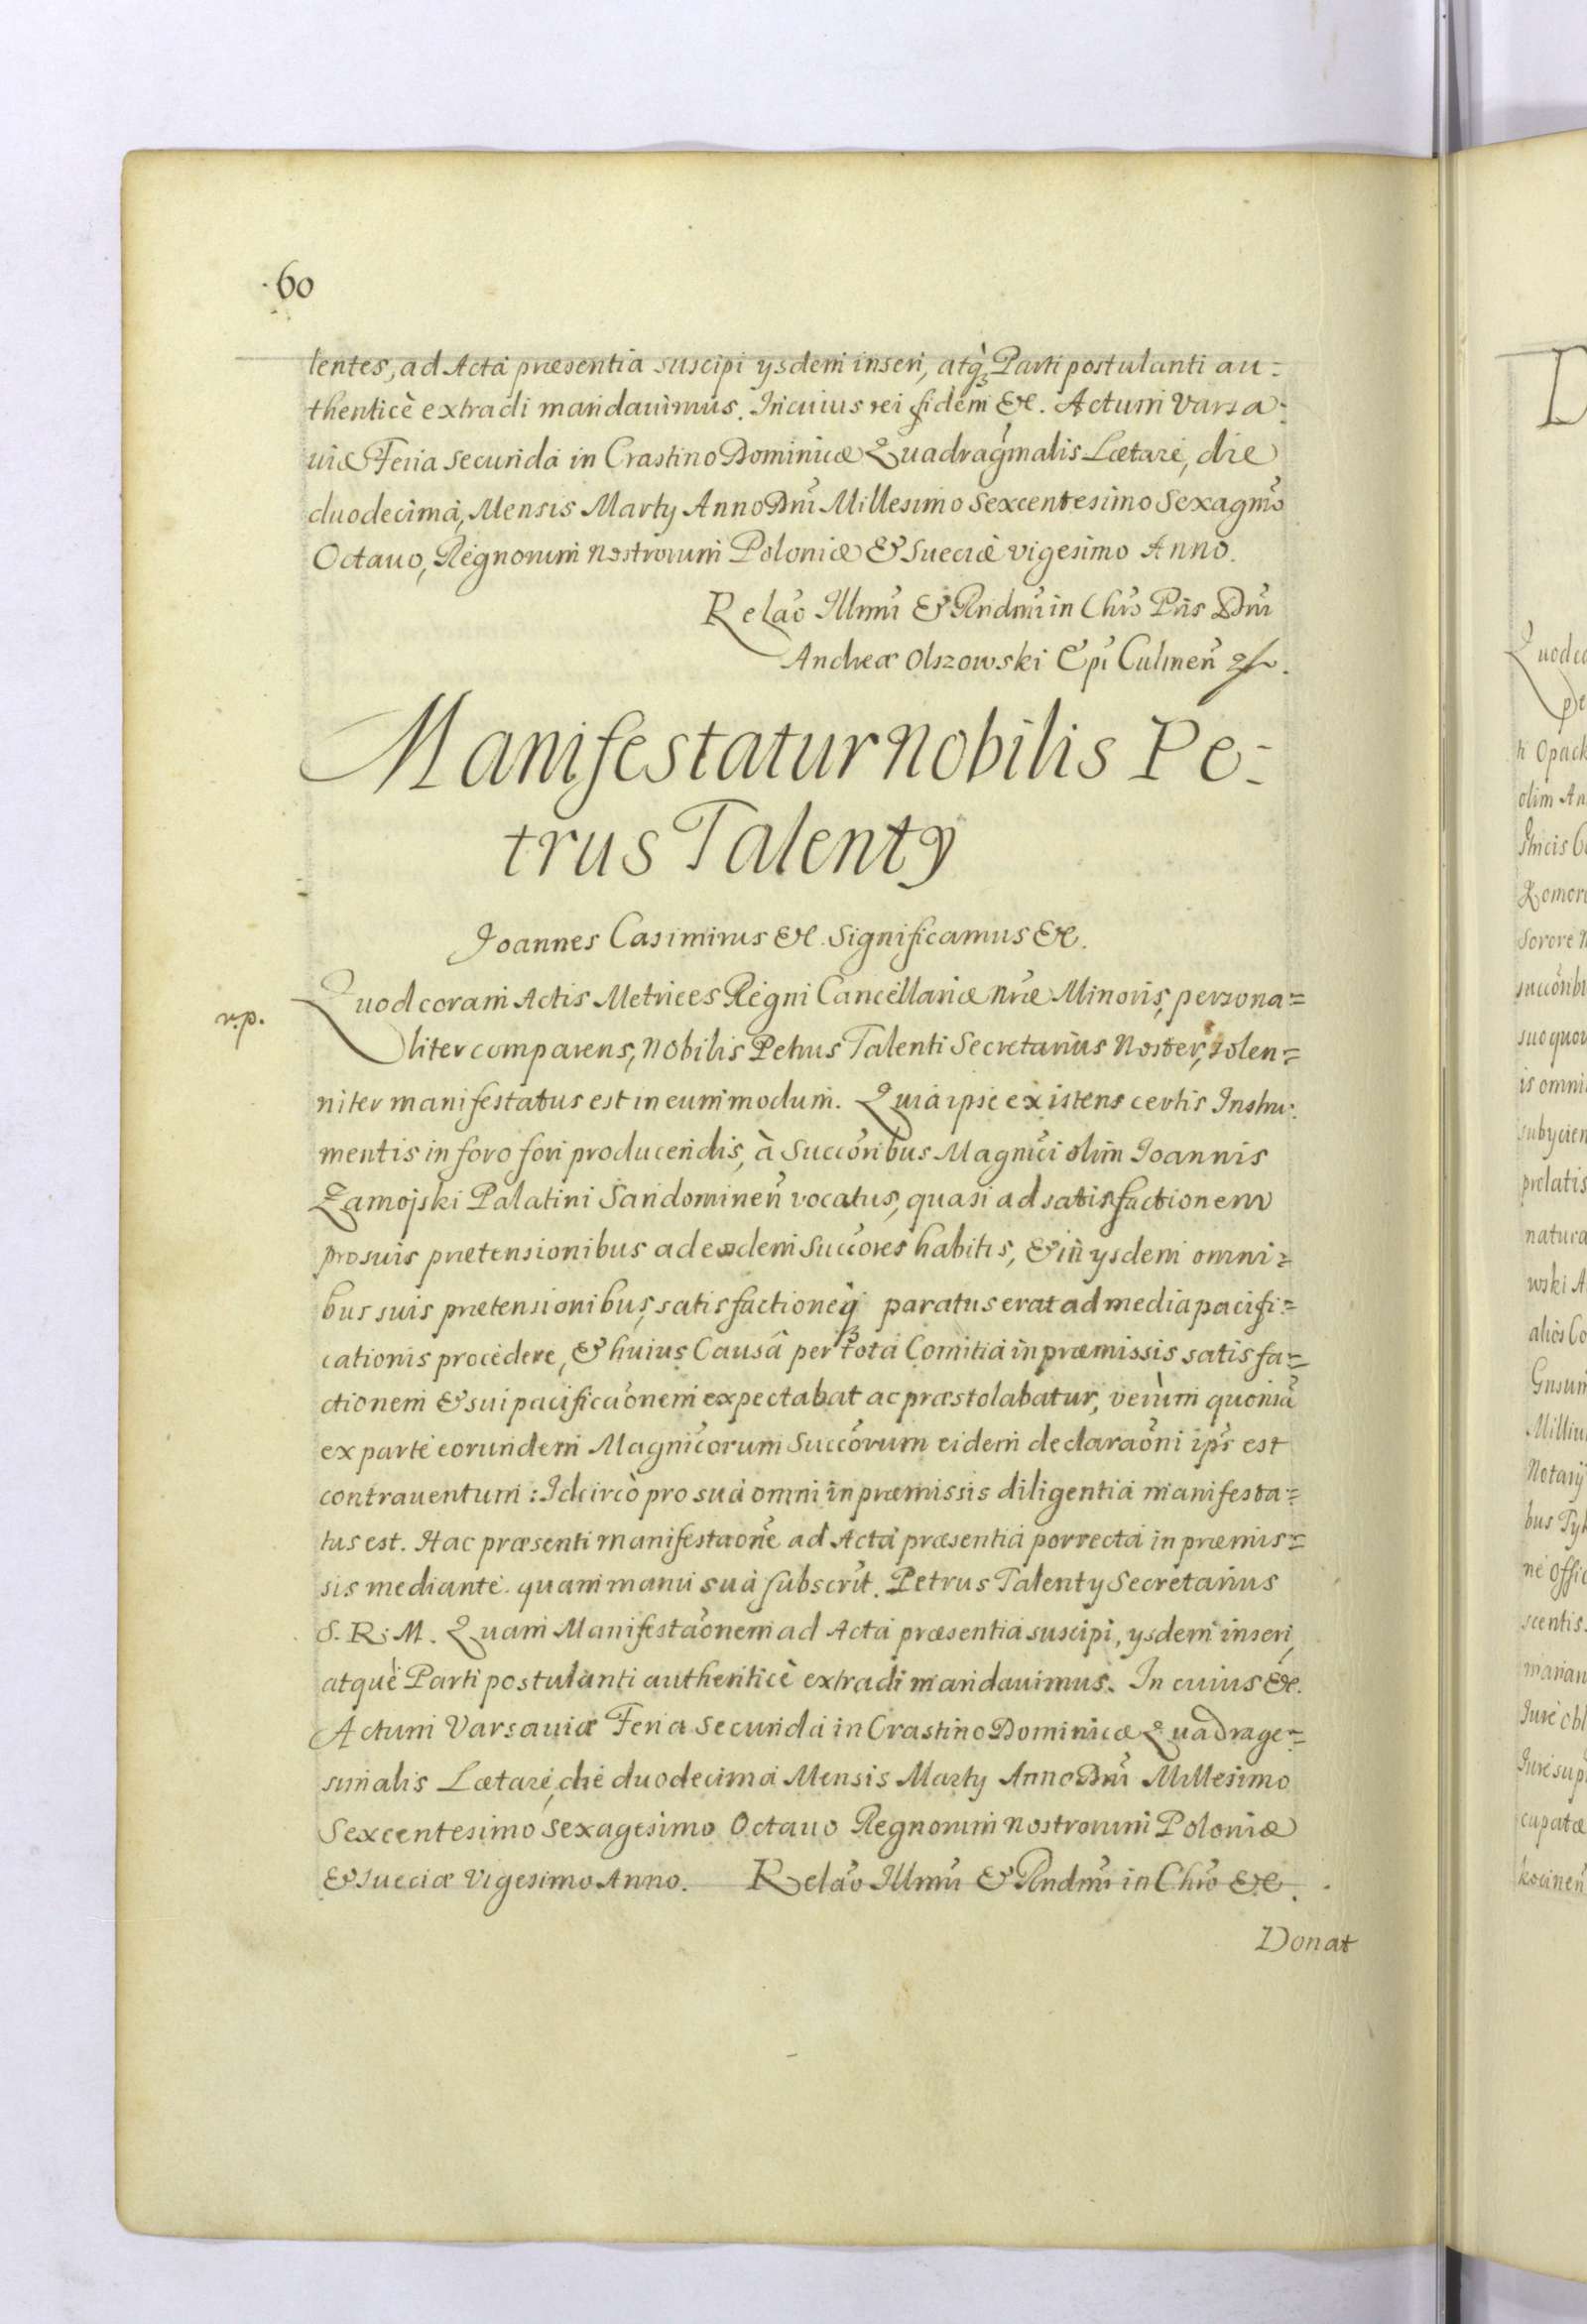 60
lentes, ad Acta præsentia suscipi ysdem inseri, atq̀ȝ Parti postulanti au-
thenticè extradi mandauimus. In cuius rei fidem &c. Actum Varsa-
uiæ Feria secunda in Crastino Dominicæ Quadragmalis Lætare, die
duodecima, Mensis Marty Anno Dni Millesimo Sexcentesimo Sexagmo
Octauo, Regnorum nostrorum Poloniæ & Sueciæ vigesimo Anno.
Relao Illmi & Rndmi in Chro Pris Dni
Andreæ Olszowski Epi Culmen
Manifestatur Nobilis Pe-
trus Talenty
Joannes Casimirus &c. Significamus &c.
Quod coram Actis Metrices Regni Cancellariæ nræ Minoris, persona=
liter comparens, Nobilis Petrus Talenti Secretarius Noster, solen=
niter manifestatus est in eum modum. Quia ipse existens certis Instru-
mentis in foro fori producendis, à Succoribus Magnici olim Joannis
Zamojski Palatini Sandominen vocatus, quasi ad satisfactionem
pro suis prætensionibus ad eosdem Succores habitis, & in ysdem omni=
bus suis prætensionibus, satisfactioneqȝ paratus erat ad media pacifi=
cationis procedere, & huius Causâ per tota Comitia in præmissis satisfa=
ctionem & sui pacificaonem expectabat ac præstolabatur, verùm quonia
ex parte eorundem Magnicorum Succorum eidem declaraoni ipi est
contrauentum: Idcircò pro sua omni in præmissis diligentia manifesta=
tus est. Hac præsenti manifestaone ad Acta præsentia porrecta in præmis=
sis mediante. quam manu sua subscrit. Petrus Talenty Secretarius
S. R. M. Quam Manifestaonem ad Acta præsentia suscipi, ysdem inseri,
atquè Parti postulanti authenticè extradi mandauimus. In cuius &c.
Actum Varsauiæ Feria Secunda in Crastino Dominicæ Quadrage=
simalis Lætare, die duodecima Mensis Marty Anno Dni Millesimo
Sexcentesimo Sexagesimo Octauo Regnorum nostrorum Poloniæ
& Sueciæ Vigesimo Anno. Relao Illmi & Rndmi in Chro &c.
Donat